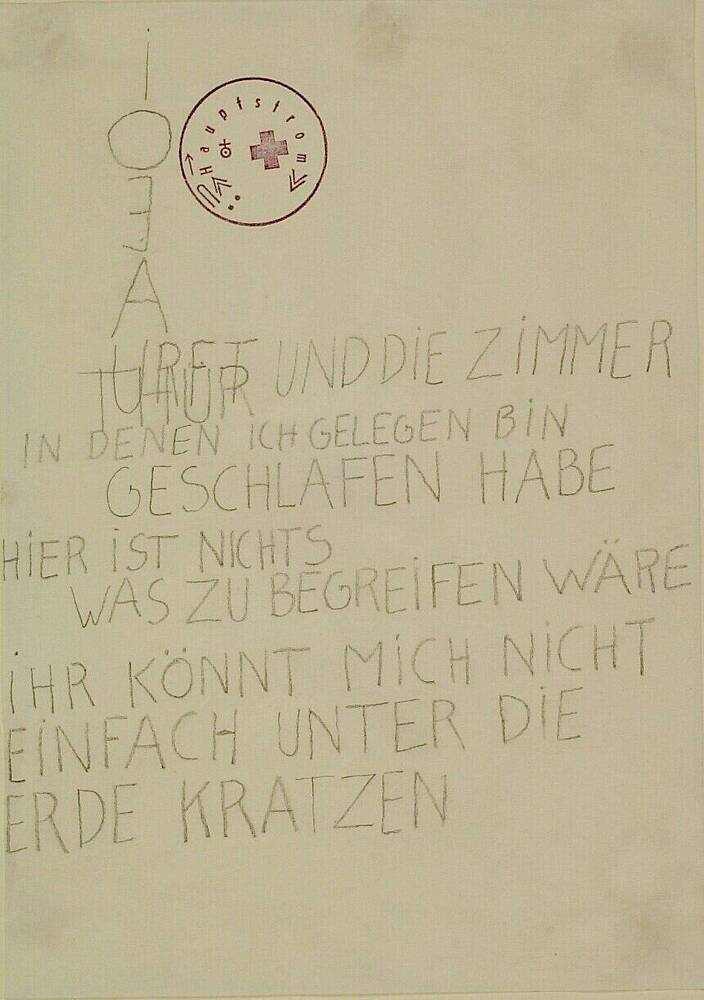 I
O
E
A
U
Hauptstrom
UND DIE ZIMMER
IN DENEN ICH GELEGEN BIN
GESCHLAFEN HABE
HIER IST NICHTS
WAS ZU BEGREIFEN WÄRE
IHR KÖNNT MICH NICHT
EINFACH UNTER DIE
ERDE KRATZEN